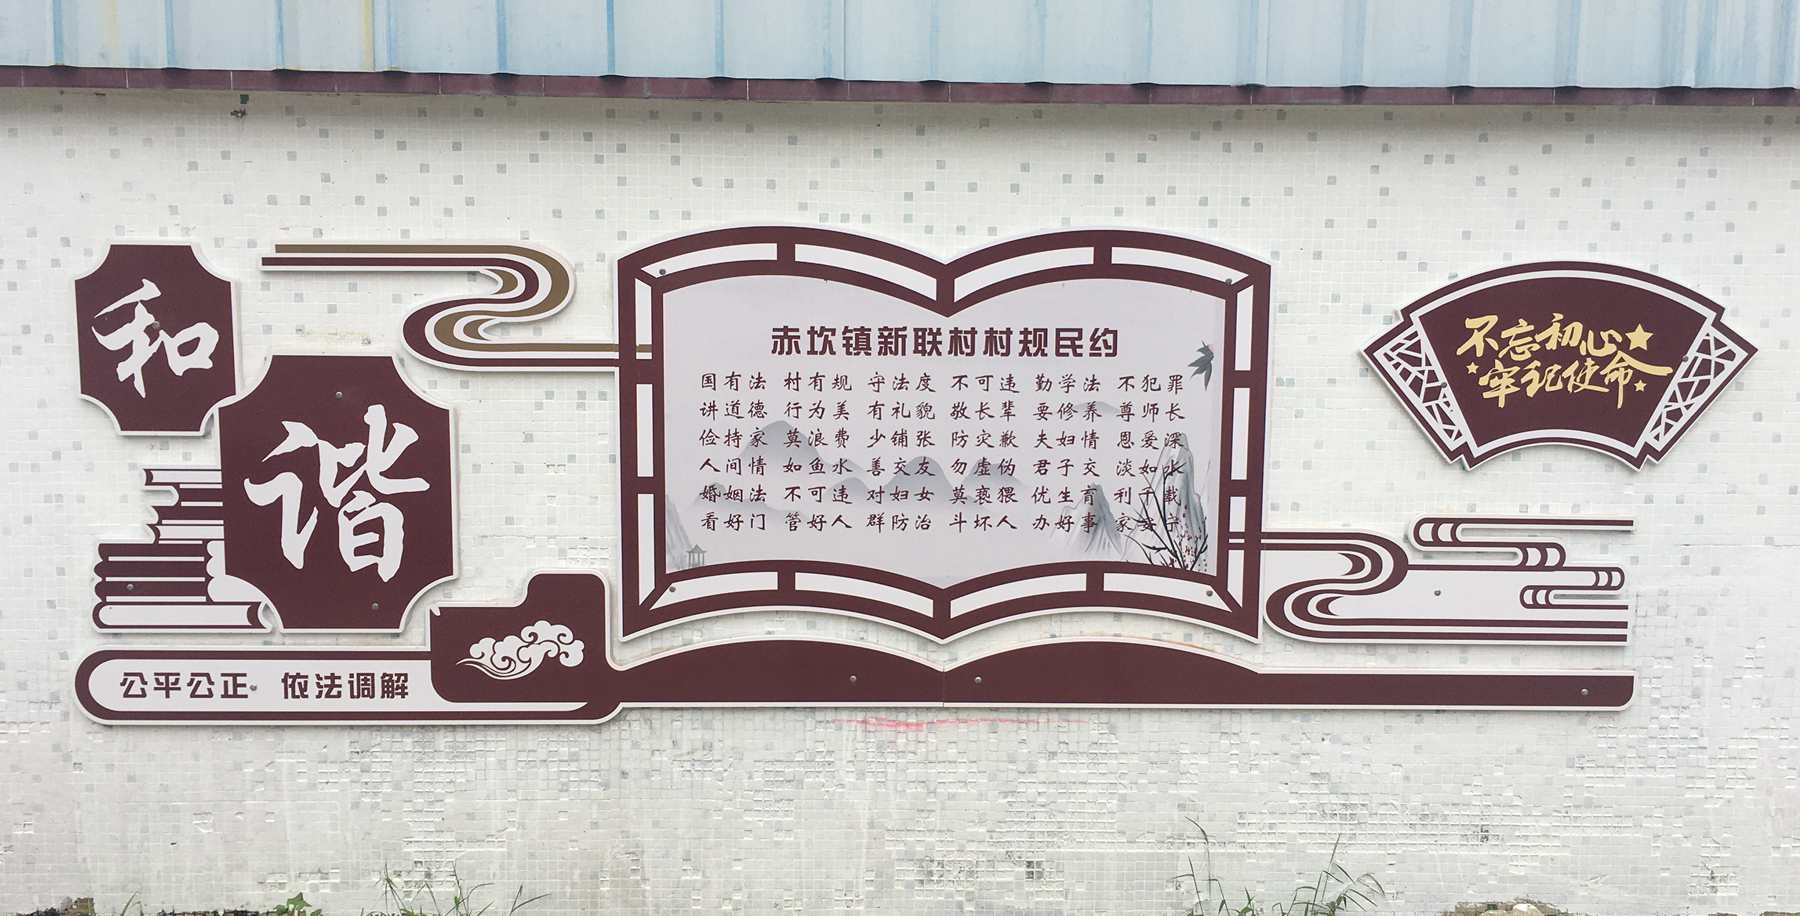 和
谐
公平公正 依法调解
赤坎镇新联村村规民约
国有法 村有规 守法度 不可违 勤学法 不犯罪
讲道德 行为美 有礼貌 敬长辈 要修养 尊师长
俭持家 莫浪费 少铺张 防灾歉 夫妇情 恩爱深
人间情 如鱼水 善交友 勿虚伪 君子交 淡如水
婚姻法 不可违 对妇女 莫亵猥 优生育 利千载
看好门 管好人 群防治 斗坏人 办好事 家安宁
不忘初心
牢记使命